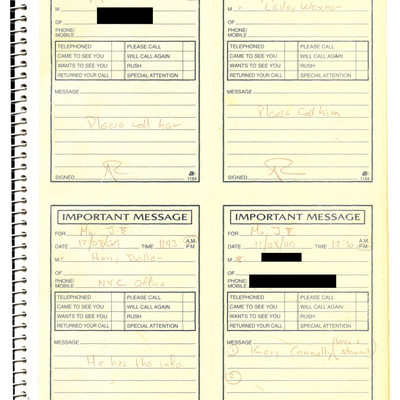 M OF
PHONE/
MOBILE
TELEPHONED PLEASE CALL
CAME TO SEE YOU WILL CALL AGAIN
WANTS TO SEE YOU RUSH
RETURNED YOUR CALL SPECIAL ATTENTION
MESSAGE
Please call her
SIGNED
1184
M
OF
PHONE/
MOBILE
TELEPHONED PLEASE CALL
CAME TO SEE YOU WILL CALL AGAIN
WANTS TO SEE YOU RUSH
RETURNED YOUR CALL SPECIAL ATTENTION
MESSAGE
Please call him
SIGNED
1184
IMPORTANT MESSAGE
FOR Mr. J.E
DATE 12/08/04 TIME 1143 A.M. P.M.
M Harry
OF
PHONE/
MOBILE NYC Office
TELEPHONED PLEASE CALL
CAME TO SEE YOU WILL CALL AGAIN
WANTS TO SEE YOU RUSH
RETURNED YOUR CALL SPECIAL ATTENTION
MESSAGE
He has the info.
IMPORTANT MESSAGE
FOR Mr. J.E
DATE 12/08/04 TIME 12:30 A.M. P.M.
M
OF
PHONE/
MOBILE
TELEPHONED PLEASE CALL
CAME TO SEE YOU WILL CALL AGAIN
WANTS TO SEE YOU RUSH
RETURNED YOUR CALL SPECIAL ATTENTION
MESSAGE
① Connolly
②